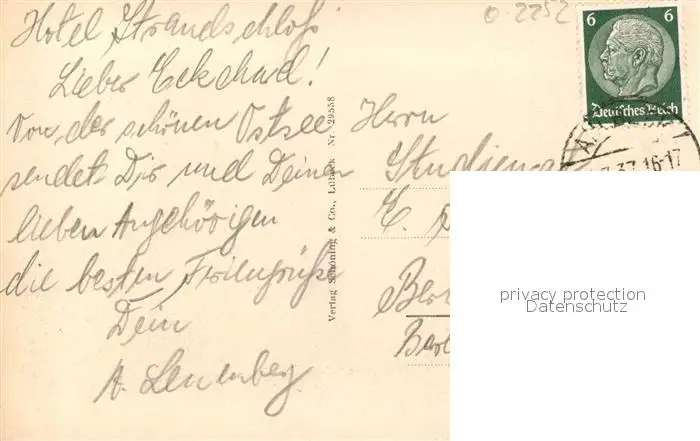 Hotel Strandschloß
Lieber Eckhard!
Von der schönen Ostsee
sendet Dir und Deinen
lieben Angehörigen
die besten Feriengrüße
Dein
A.
Verlag Schöning & Co., Lübeck Nr. 29558
0-2252
6 6
Deutsches Reich
37.16-17
Herrn
Studien
E.
Ber
privacy protection
Datenschutz